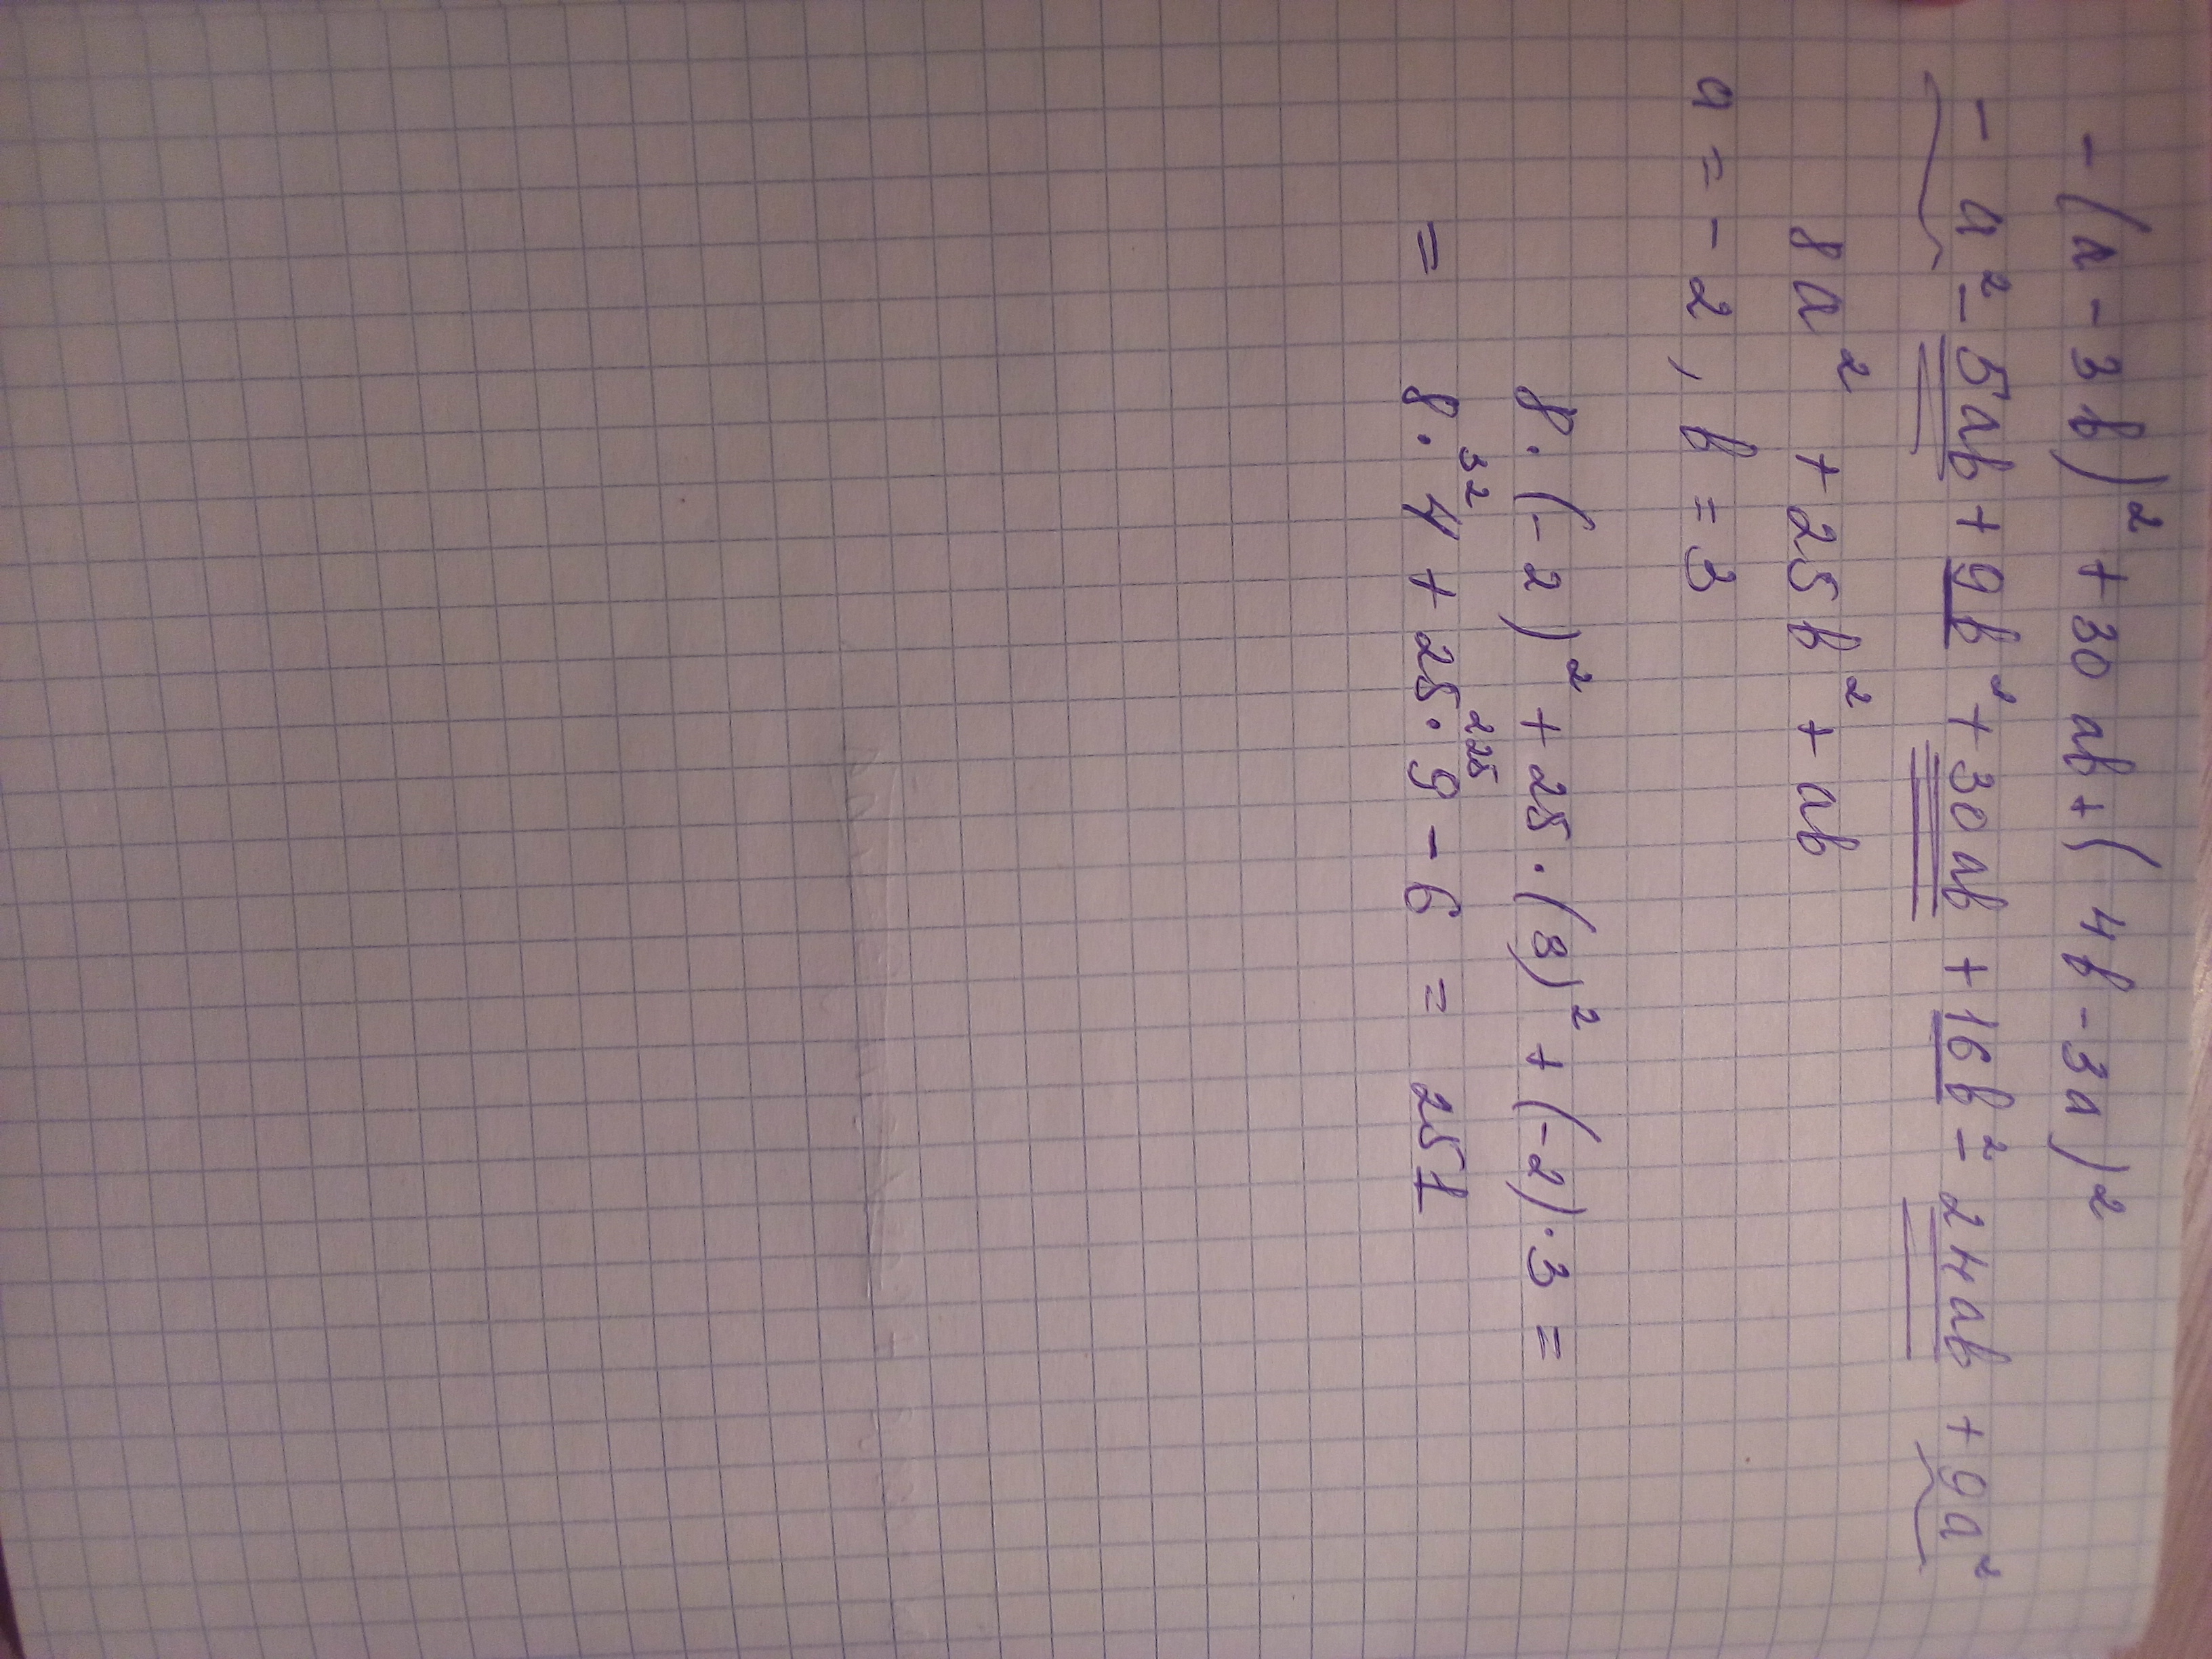 - (a - 3b)² + 30ab + (4b - 3a)²
- a² - 5ab + 9b² + 30ab + 16b² - 24ab + 9a²
8a² + 25b² + ab
a = - 2, b = 3
8 · (-2)² + 25 · (3)² + (-2) · 3 =
32 225
= 8 · 4 + 25 · 9 - 6 = 251